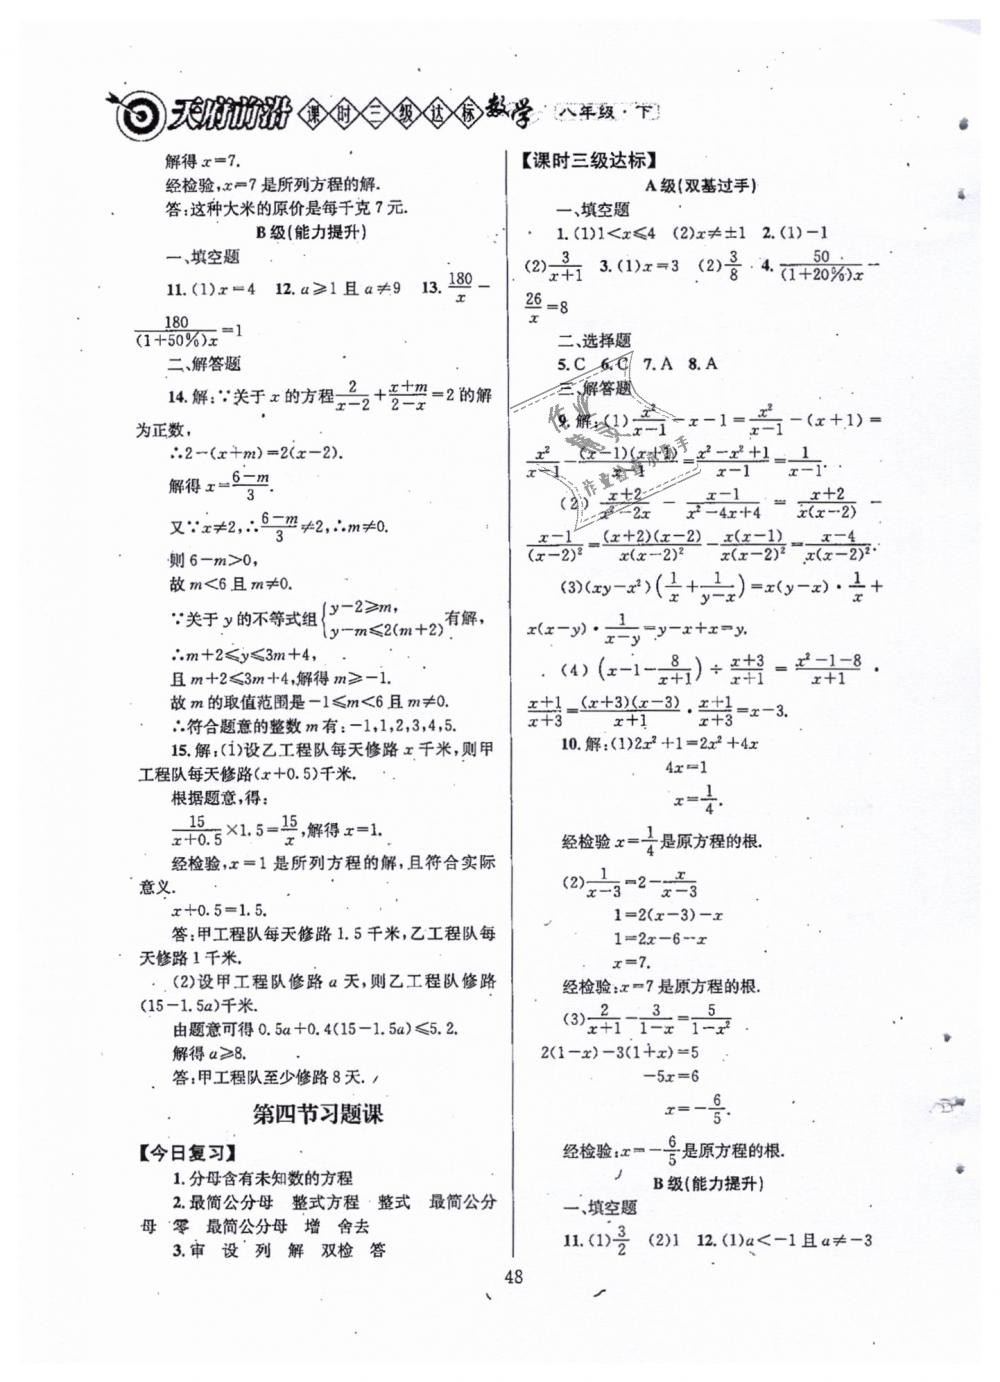 天府前沿 课时三级达标 数学 八年级·下
解得 x=7.
经检验,x=7 是所列方程的解.
答:这种大米的原价是每千克 7 元.
B 级(能力提升)
一、填空题
11. (1)x=4 12. a⩾1 且 a≠9 13. 180/x −
180/((1+50%)x)=1
二、解答题
14. 解:∵关于 x 的方程 2/(x−2)+(x+m)/(2−x)=2 的解
为正数,
∴2−(x+m)=2(x−2).
解得 x=(6−m)/3.
又∵x≠2,∴(6−m)/3≠2,∴m≠0.
则 6−m>0,
故 m<6 且 m≠0.
∵关于 y 的不等式组{y−2⩾m, y−m⩽2(m+2)有解,
∴m+2⩽y⩽3m+4,
且 m+2⩽3m+4,解得 m⩾−1.
故 m 的取值范围是−1⩽m<6 且 m≠0.
∴符合题意的整数 m 有:−1,1,2,3,4,5.
15. 解:(1)设乙工程队每天修路 x 千米,则甲
工程队每天修路(x+0.5)千米.
根据题意,得:
15/(x+0.5)×1.5=15/x,解得 x=1.
经检验,x=1 是所列方程的解,且符合实际
意义.
x+0.5=1.5.
答:甲工程队每天修路 1.5 千米,乙工程队每
天修路 1 千米.
(2)设甲工程队修路 a 天,则乙工程队修路
(15−1.5a)千米.
由题意可得 0.5a+0.4(15−1.5a)⩽5.2.
解得 a⩾8.
答:甲工程队至少修路 8 天.
第四节习题课
【今日复习】
1. 分母含有未知数的方程
2. 最简公分母 整式方程 整式 最简公分
母 零 最简公分母 增 舍去
3. 审 设 列 解 双检 答
【课时三级达标】
A 级(双基过手)
一、填空题
1. (1)1<x⩽4 (2)x≠±1 2. (1)−1
(2)3/(x+1) 3. (1)x=3 (2)3/8 4. 50/((1+20%)x)−
26/x=8
二、选择题
5. C 6. C 7. A 8. A
三、解答题
9. 解:(1)x²/(x−1)−x−1=x²/(x−1)−(x+1)=
x²/(x−1)−(x−1)(x+1)/(x−1)=(x²−x²+1)/(x−1)=1/(x−1).
(2)(x+2)/(x²−2x)−(x−1)/(x²−4x+4)=(x+2)/(x(x−2))−
(x−1)/(x−2)²=(x+2)(x−2)/(x(x−2)²)−x(x−1)/(x(x−2)²)=(x−4)/(x(x−2)²).
(3)(xy−x²)(1/x+1/(y−x))=x(y−x)·1/x+
x(x−y)·1/(x−y)=y−x+x=y.
(4)(x−1−8/(x+1))÷(x+3)/(x+1)=(x²−1−8)/(x+1)·
(x+1)/(x+3)=(x+3)(x−3)/(x+1)·(x+1)/(x+3)=x−3.
10. 解:(1)2x²+1=2x²+4x
4x=1
x=1/4.
经检验 x=1/4 是原方程的根.
(2)1/(x−3)=2−x/(x−3)
1=2(x−3)−x
1=2x−6−x
x=7.
经检验:x=7 是原方程的根.
(3)2/(x+1)−3/(1−x)=5/(1−x²)
2(1−x)−3(1+x)=5
−5x=6
x=−6/5.
经检验:x=−6/5 是原方程的根.
B 级(能力提升)
一、填空题
11. (1)3/2 (2)1 12. (1)a<−1 且 a≠−3
48